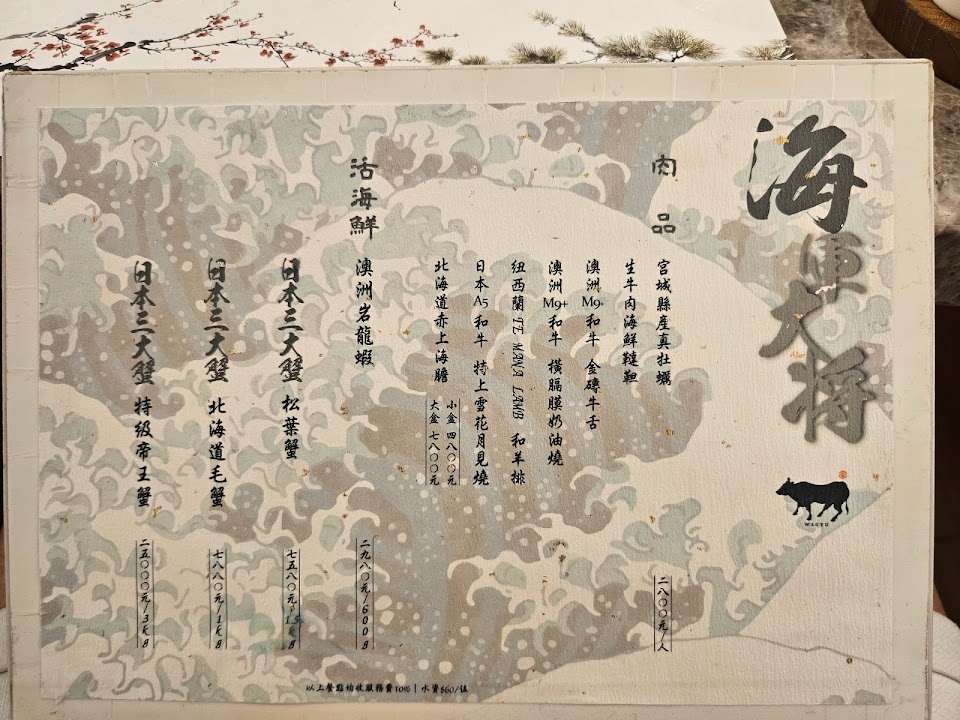 海軍大将
WAGYU
肉品
宮城縣産真牡蠣
二八〇〇元/人
生牛肉海鮮韃靼
澳洲M9+和牛 金磚牛舌
澳洲M9+和牛 橫膈膜奶油燒
紐西蘭 TE MANA LAMB 和羊排
日本A5和牛 特上雪花月見燒
北海道赤上海膽
小盒 四八〇〇元
大盒 七八〇〇元
活海鮮
澳洲岩龍蝦
二九八〇元/600g
日本三大蟹 松葉蟹
七五八〇元/1.3kg
日本三大蟹 北海道毛蟹
七八八〇元/1kg
日本三大蟹 特級帝王蟹
二五〇〇〇元/3kg
以上餐點均收服務費10% | 水資$60/位